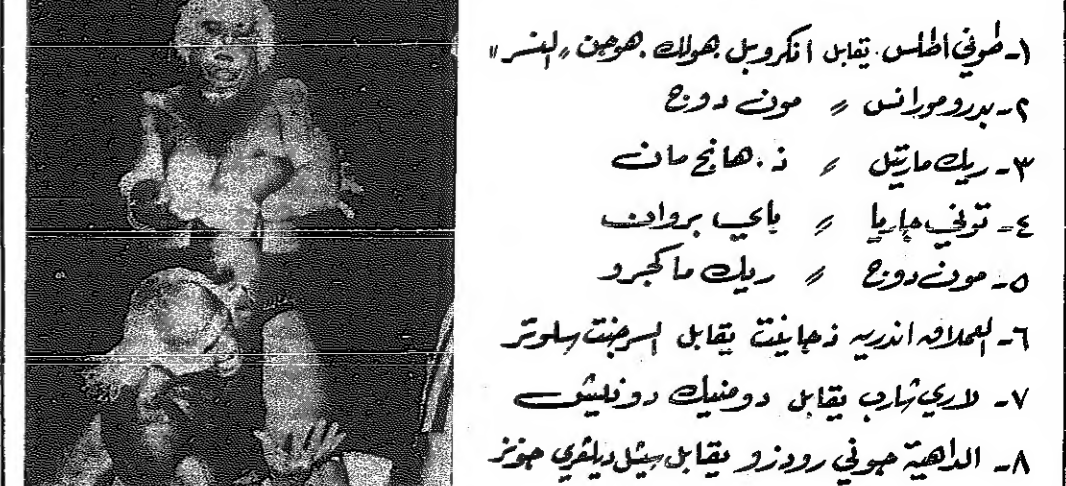 ١- طوني اطلس . يقابل انكروبل هولك . هوجن "النسر"
٢- بدرومورانس 〃 مون دوج
٣- ريك مارتيل 〃 ذ . هانج مان
٤- توني جاريا 〃 باي بروان
٥- مون دوج 〃 ريك ماكجرو
٦- العملاق اندريه ذجاينت يقابل السرجنت سلوتر
٧- لاري شارب يقابل دومنيك دونليش
٨- الداهية جوني رودزو يقابل سيشل ديلفري جونز